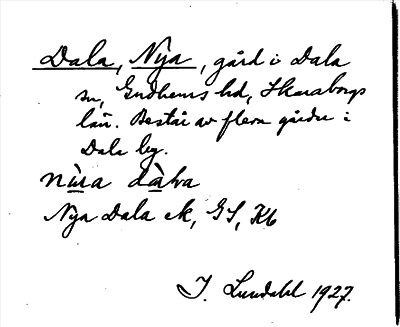 Dala, Nya, gård i Dala
sn, Gudhems hd, Skaraborgs
län. Består av flera gårdar i
Dala by.
Nya Dala ek, GS, Kb
I. Lundahl 1927.